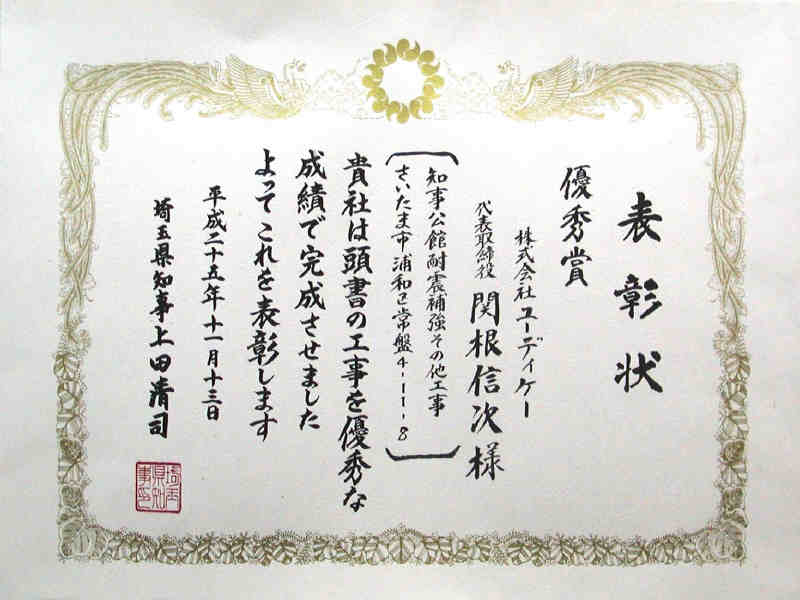 表彰状
優秀賞
株式会社ユーディケー
代表取締役 関根信次様
知事公館耐震補強その他工事
さいたま市浦和区常盤4-11-8
貴社は頭書の工事を優秀な
成績で完成させました
よってこれを表彰します
平成二十五年十一月十三日
埼玉県知事上田清司
埼玉県知事之印